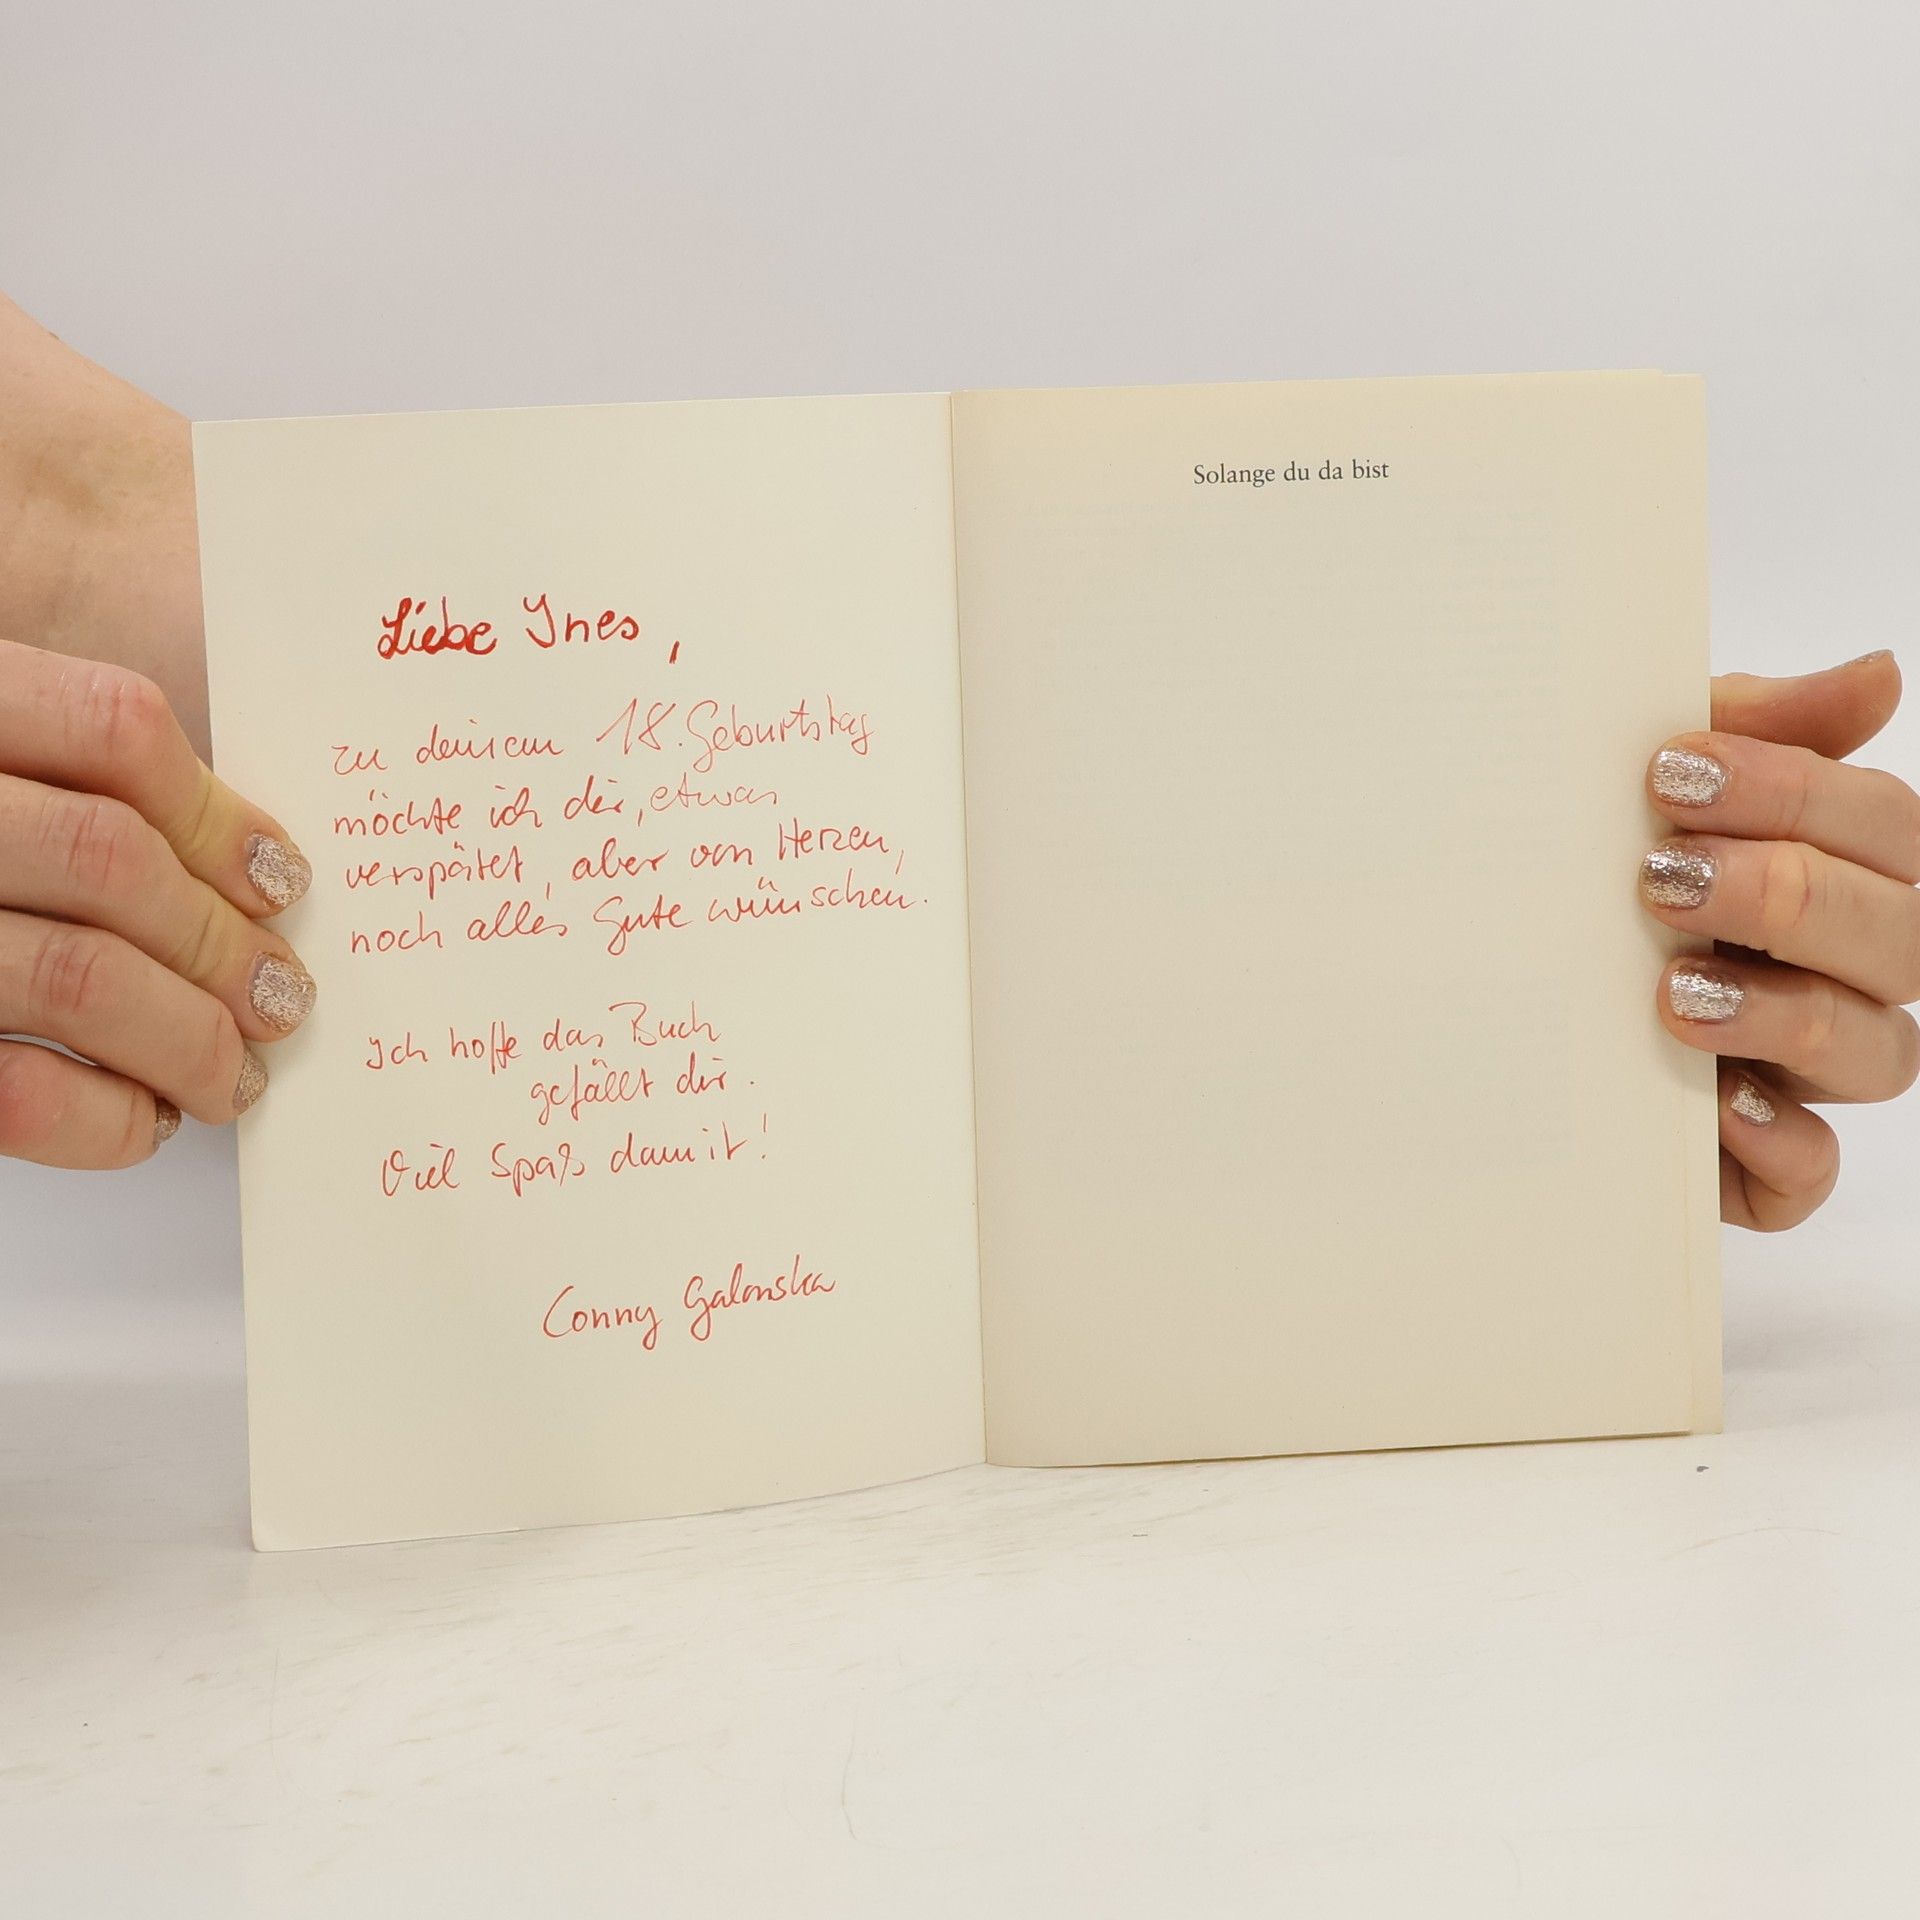 Liebe Ines,
zu deinem 18. Geburtstag
möchte ich dir, etwas
verspätet, aber von Herzen,
noch alles Gute wünschen.
Ich hoffe das Buch
gefällt dir.
Viel Spaß damit!
Conny Galonska
Solange du da bist